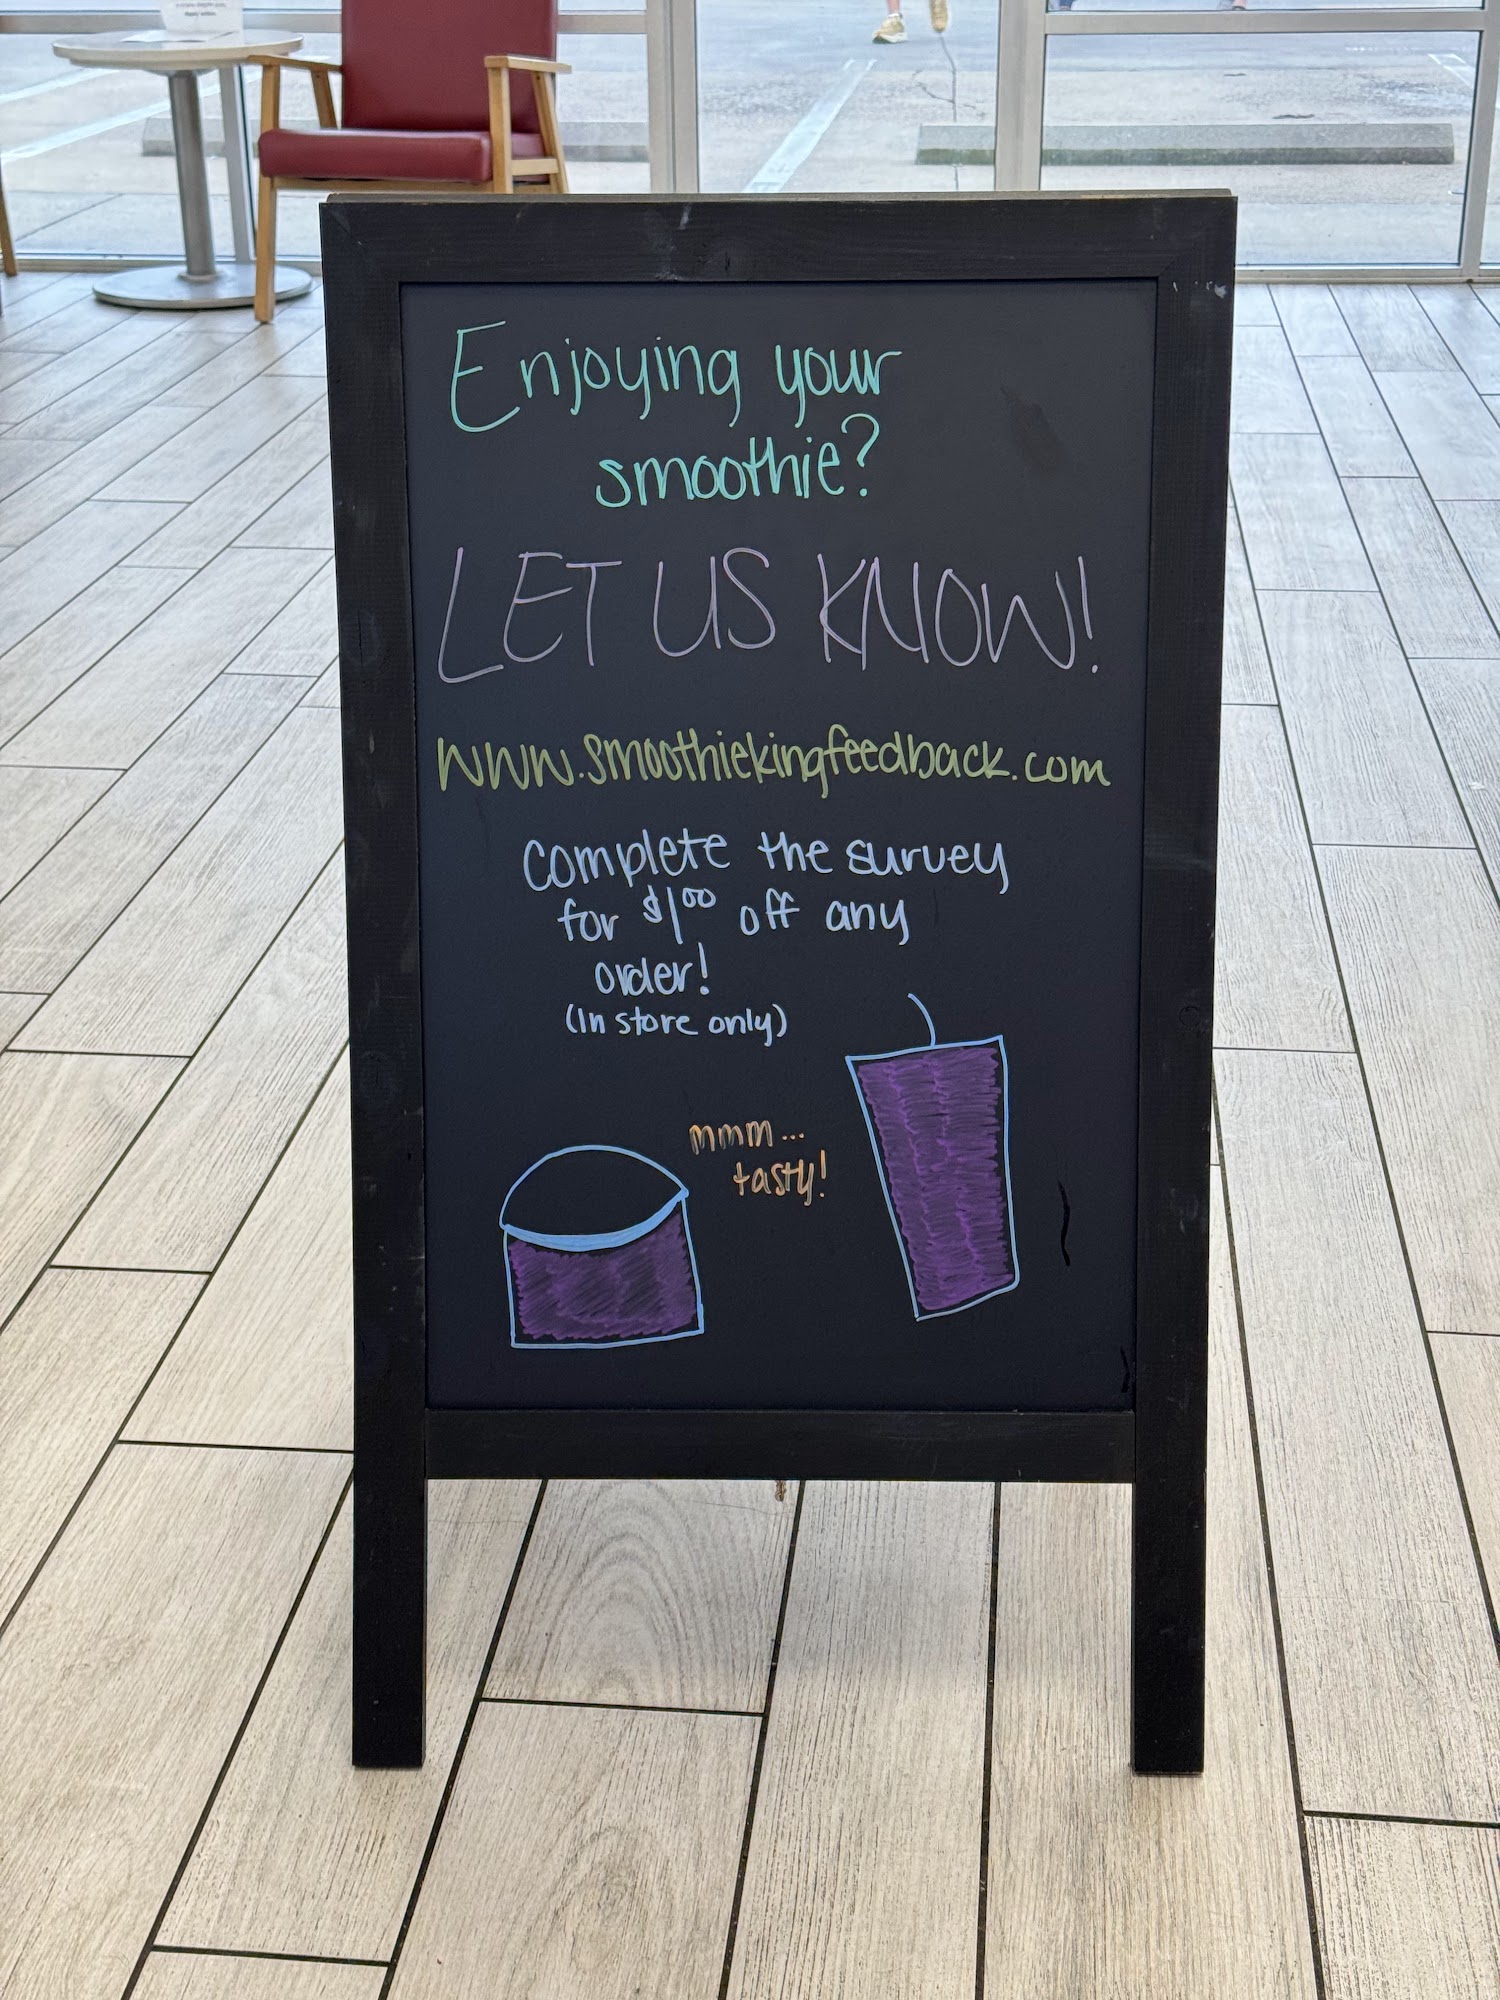 Enjoying your
smoothie?
LET US KNOW!
www.smoothiekingfeedback.com
Complete the survey
for $1⁰⁰ off any
order!
(In store only)
mmm...
tasty!